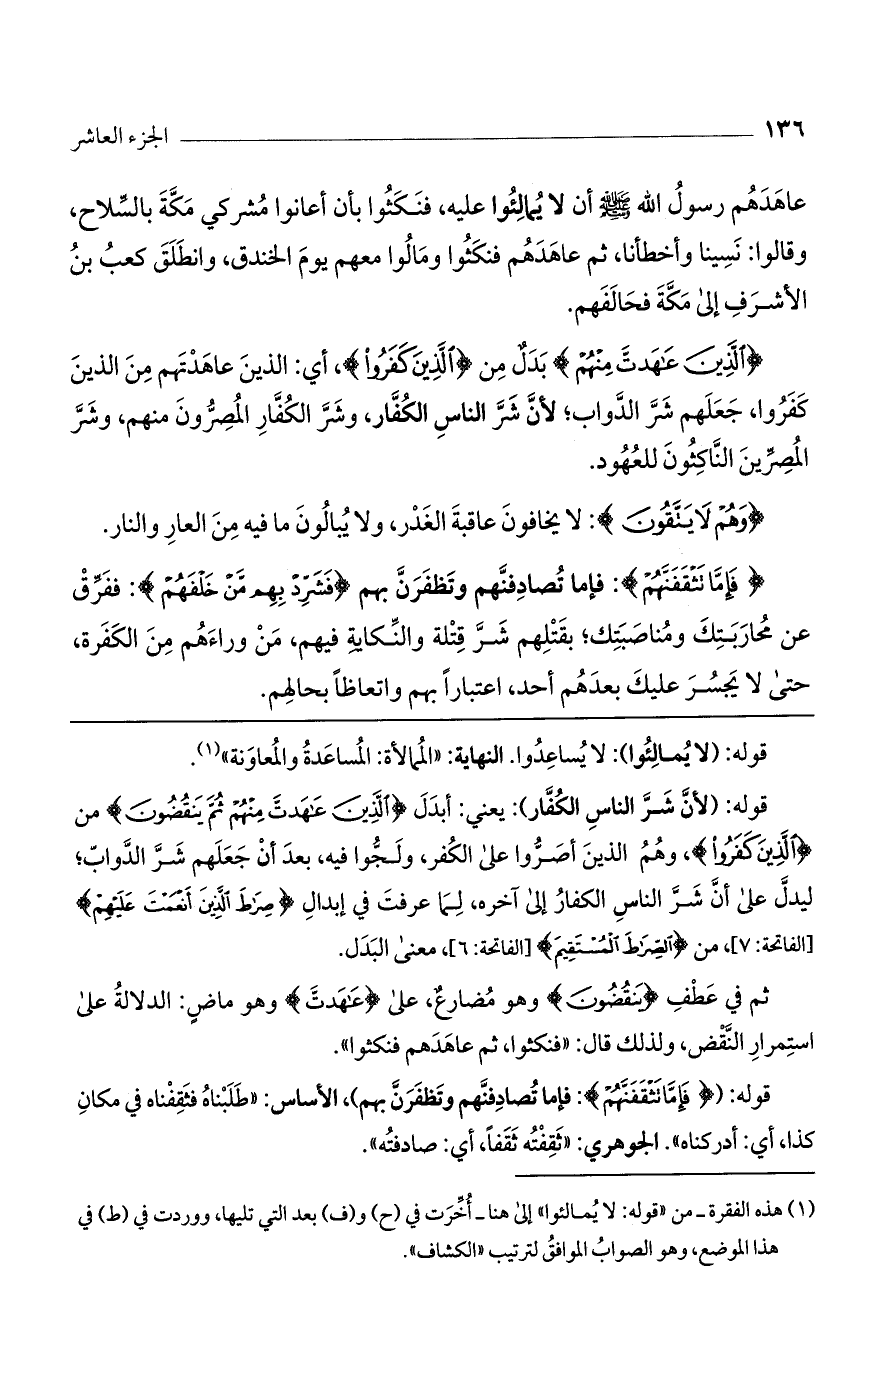 ١٣٦ ـــــــ الجزء العاشر
عاهَدَهُم رسولُ الله ﷺ أن لا يُمالِئُوا عليه، فنَكَثُوا بأن أعانوا مُشركي مَكَّةَ بالسِّلاح،
وقالوا: نَسِينا وأخطأنا، ثم عاهَدَهُم فنكَثُوا ومَالُوا معهم يومَ الخندق، وانطَلَقَ كعبُ بنُ
الأشرَفِ إلىٰ مَكَّةَ فحَالَفَهم.
﴿ٱلَّذِينَ عَٰهَدتَّ مِنْهُمْ﴾ بَدَلٌ مِن ﴿ٱلَّذِينَ كَفَرُواْ﴾، أي: الذينَ عاهَدْتَهم مِنَ الذينَ
كَفَرُوا، جَعَلَهم شَرَّ الدَّواب؛ لأنَّ شَرَّ الناسِ الكُفَّار، وشَرَّ الكُفَّارِ المُصِرُّونَ منهم، وشَرَّ
المُصِرِّينَ النَّاكِثُونَ للعُهُود.
﴿وَهُمْ لَا يَتَّقُونَ﴾: لا يخافونَ عاقبةَ الغَدْر، ولا يُبالُونَ ما فيه مِنَ العارِ والنار.
﴿فَإِمَّا نَثْقَفَنَّهُمْ﴾: فإما تُصادِفنَّهم وتَظفَرَنَّ بهم ﴿فَشَرِّدْ بِهِم مَّنْ خَلْفَهُمْ﴾: ففَرِّقْ
عن مُحارَبَتِكَ ومُناصَبَتِك؛ بقَتْلِهم شَرَّ قِتْلة والنِّكايةِ فيهم، مَنْ وراءَهُم مِنَ الكَفَرة،
حتىٰ لا يَجسُرَ عليكَ بعدَهُم أحد، اعتباراً بهم واتعاظاً بحالهِم.
قوله: (لا يُمالِئُوا): لا يُساعِدُوا. النهاية: «المُمالأة: المُساعَدةُ والمُعاوَنة»(١).
قوله: (لأنَّ شَرَّ الناسِ الكُفَّار): يعني: أبدَلَ ﴿ٱلَّذِينَ عَٰهَدتَّ مِنْهُمْ ثُمَّ يَنقُضُونَ﴾ من
﴿ٱلَّذِينَ كَفَرُواْ﴾، وهُمُ الذينَ أصَرُّوا علىٰ الكُفر، ولَجُّوا فيه، بعدَ أنْ جَعَلَهم شَرَّ الدَّوابّ؛
ليدلَّ علىٰ أنَّ شَرَّ الناسِ الكفارُ إلىٰ آخره، لِمَا عرفتَ في إبدالِ ﴿صِرَٰطَ ٱلَّذِينَ أَنْعَمْتَ عَلَيْهِمْ﴾
[الفاتحة: ٧]، من ﴿ٱلصِّرَٰطَ ٱلْمُسْتَقِيمَ﴾ [الفاتحة: ٦]، معنىٰ البَدَل.
ثم في عَطْفِ ﴿يَنقُضُونَ﴾ وهو مُضارعٌ، علىٰ ﴿عَٰهَدتَّ﴾ وهو ماضٍ: الدلالةُ علىٰ
استِمرارِ النَّقْض، ولذلك قال: «فنكثوا، ثم عاهَدَهم فنكثوا».
قوله: (﴿فَإِمَّا نَثْقَفَنَّهُمْ﴾: فإما تُصادِفنَّهم وتَظفَرَنَّ بهم)، الأساس: «طَلَبْناهُ فثَقِفْناه في مكانِ
كذا، أي: أدركناه». الجوهري: «ثَقِفْتُه ثَقَفاً، أي: صادفتُه».
(١) هذه الفقرة ـ من «قوله: لا يُمالئوا» إلىٰ هنا ـ أُخِّرَت في (ح) و(ف) بعد التي تليها، ووردت في (ط) في
هذا الموضع، وهو الصوابُ الموافقُ لترتيب «الكشاف».